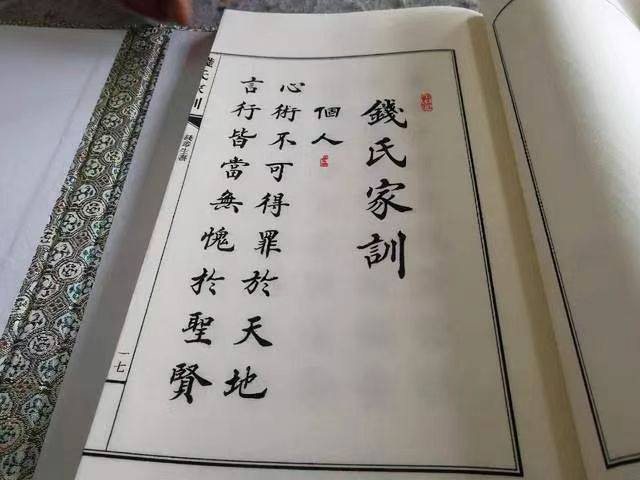 錢氏家訓
個人
心術不可得罪於天地
言行皆當無愧於聖賢
錢氏家訓
一七